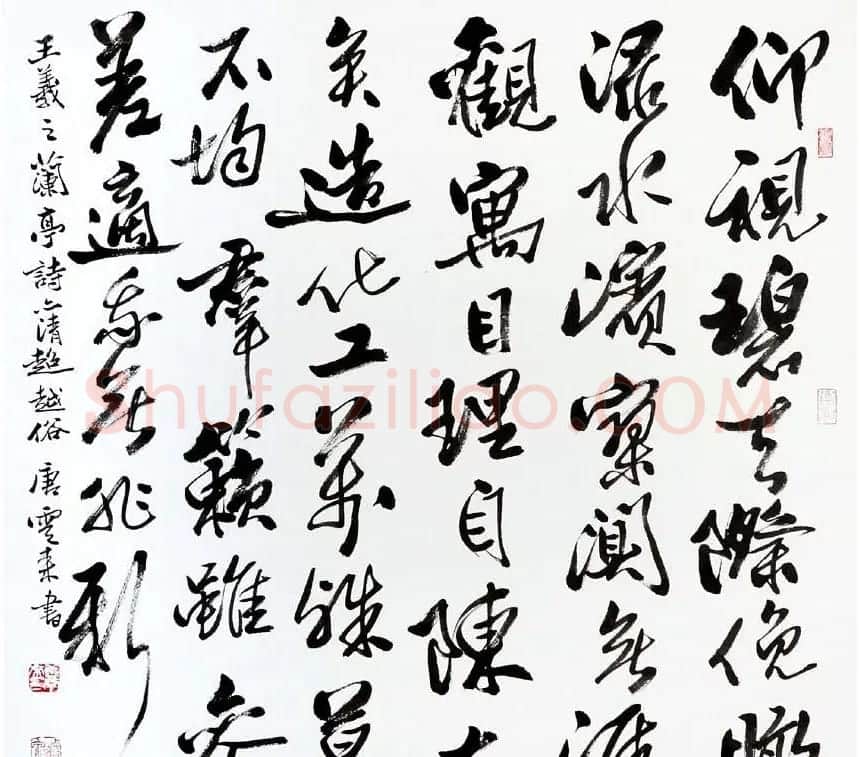 仰視碧天際俛瞰
渌水濱寥闃無涯
觀寓目理自陳大
矣造化工萬殊莫
不均羣籟雖參
差適我無非新
王羲之蘭亭詩清超越俗 唐雲来書
Shufaziliao.COM